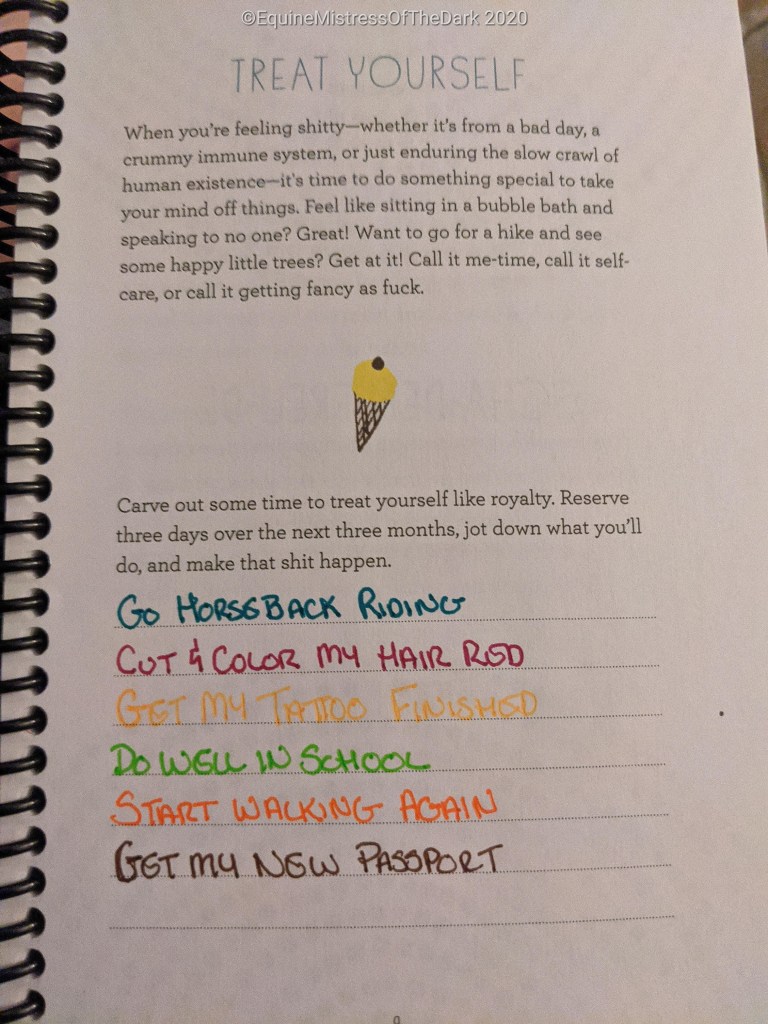 ©EquineMistressOfTheDark 2020
TREAT YOURSELF
When you're feeling shitty—whether it's from a bad day, a
crummy immune system, or just enduring the slow crawl of
human existence—it's time to do something special to take
your mind off things. Feel like sitting in a bubble bath and
speaking to no one? Great! Want to go for a hike and see
some happy little trees? Get at it! Call it me-time, call it self-
care, or call it getting fancy as fuck.
Carve out some time to treat yourself like royalty. Reserve
three days over the next three months, jot down what you'll
do, and make that shit happen.
GO HORSEBACK RIDING
CUT & COLOR MY HAIR RED
GET MY TATTOO FINISHED
DO WELL IN SCHOOL
START WALKING AGAIN
GET MY NEW PASSPORT